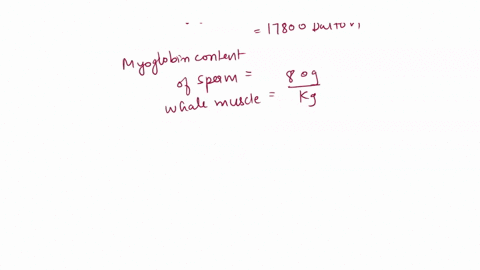 = 17800 Daltons
Myoglobin content
of sperm = 80g
whale muscle = Kg